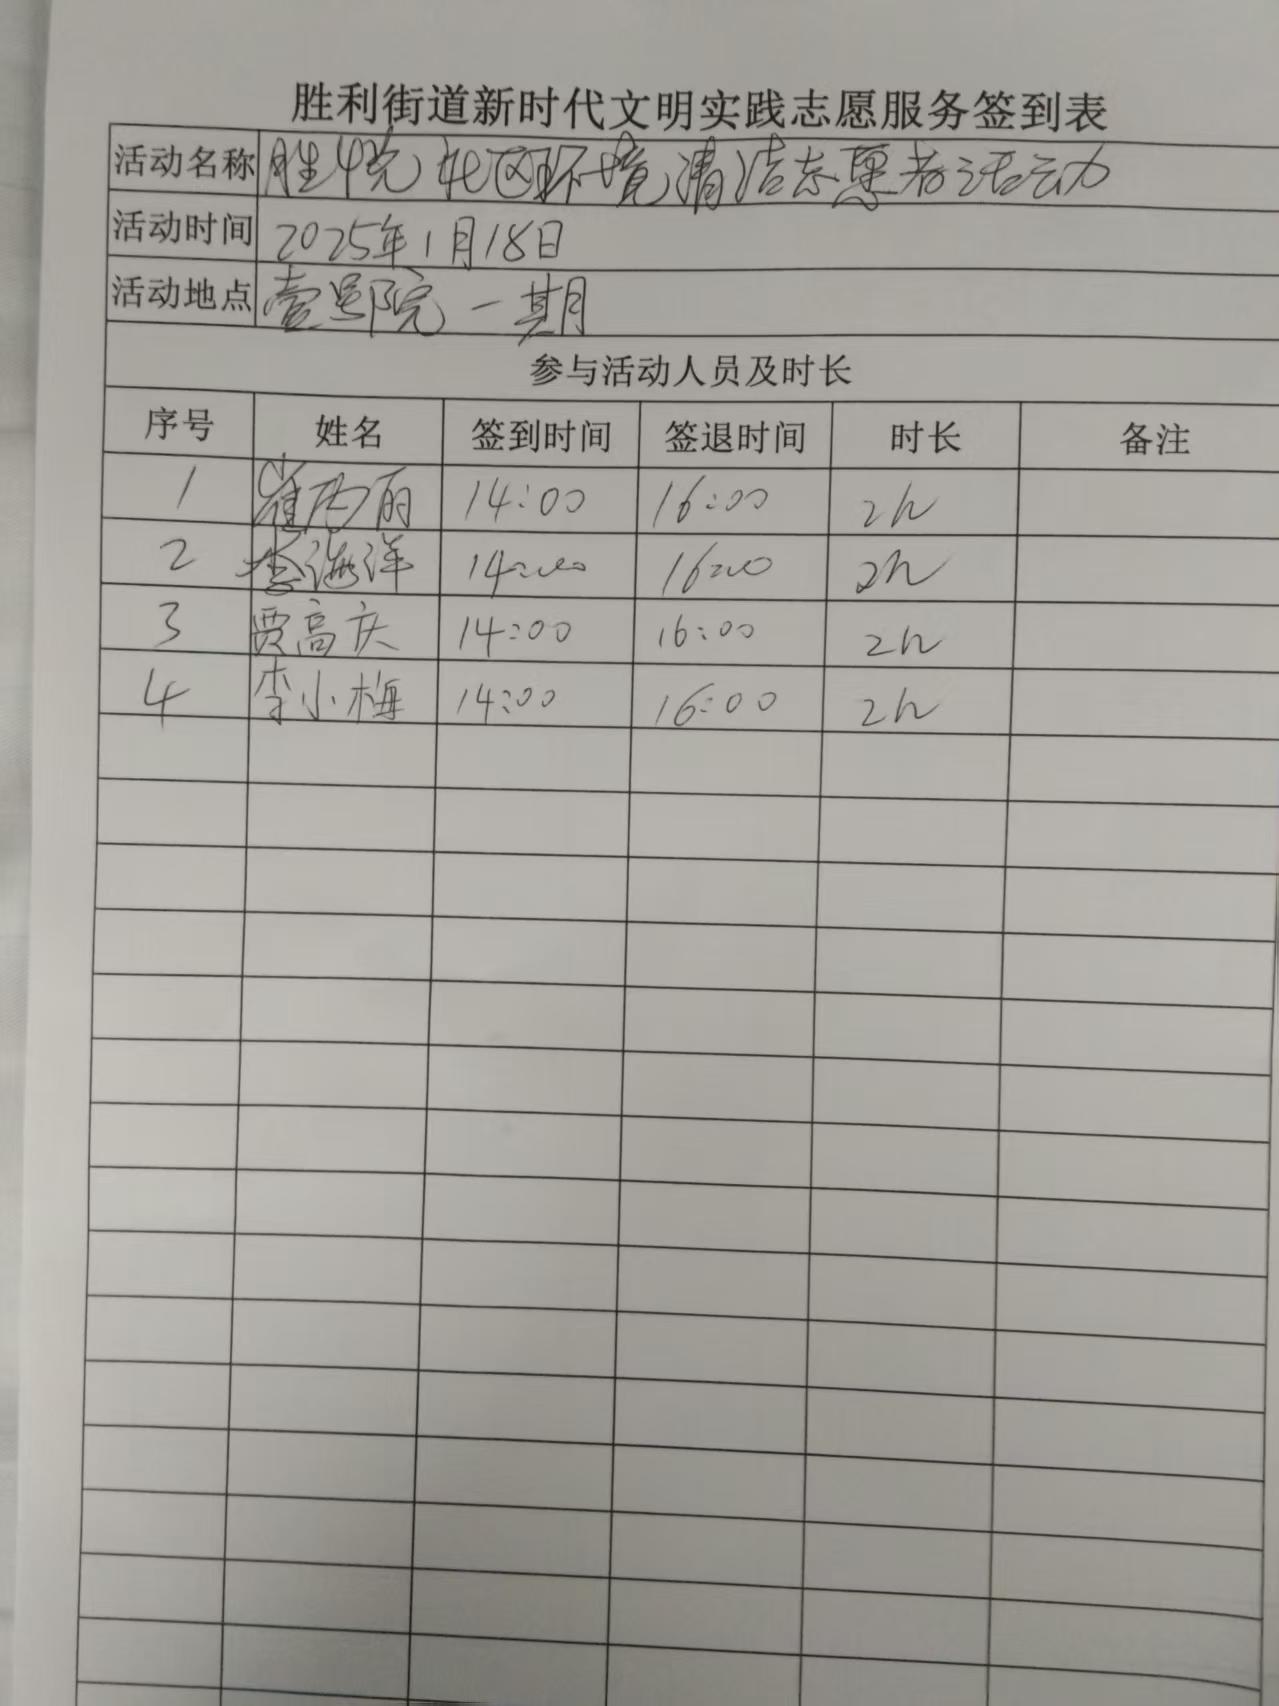 胜利街道新时代文明实践志愿服务签到表
活动名称 胜中院社区环境清洁志愿者活动
活动时间 2025年1月18日
活动地点 壹号院一期
参与活动人员及时长
序号 姓名 签到时间 签退时间 时长 备注
1 崔丽 14:00 16:00 2h
2 李海洋 14:00 16:00 2h
3 贾高庆 14:00 16:00 2h
4 李小梅 14:00 16:00 2h